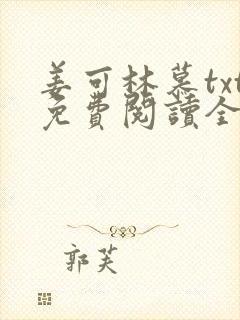 姜可林慕txt
免費閱讀全
郭芙